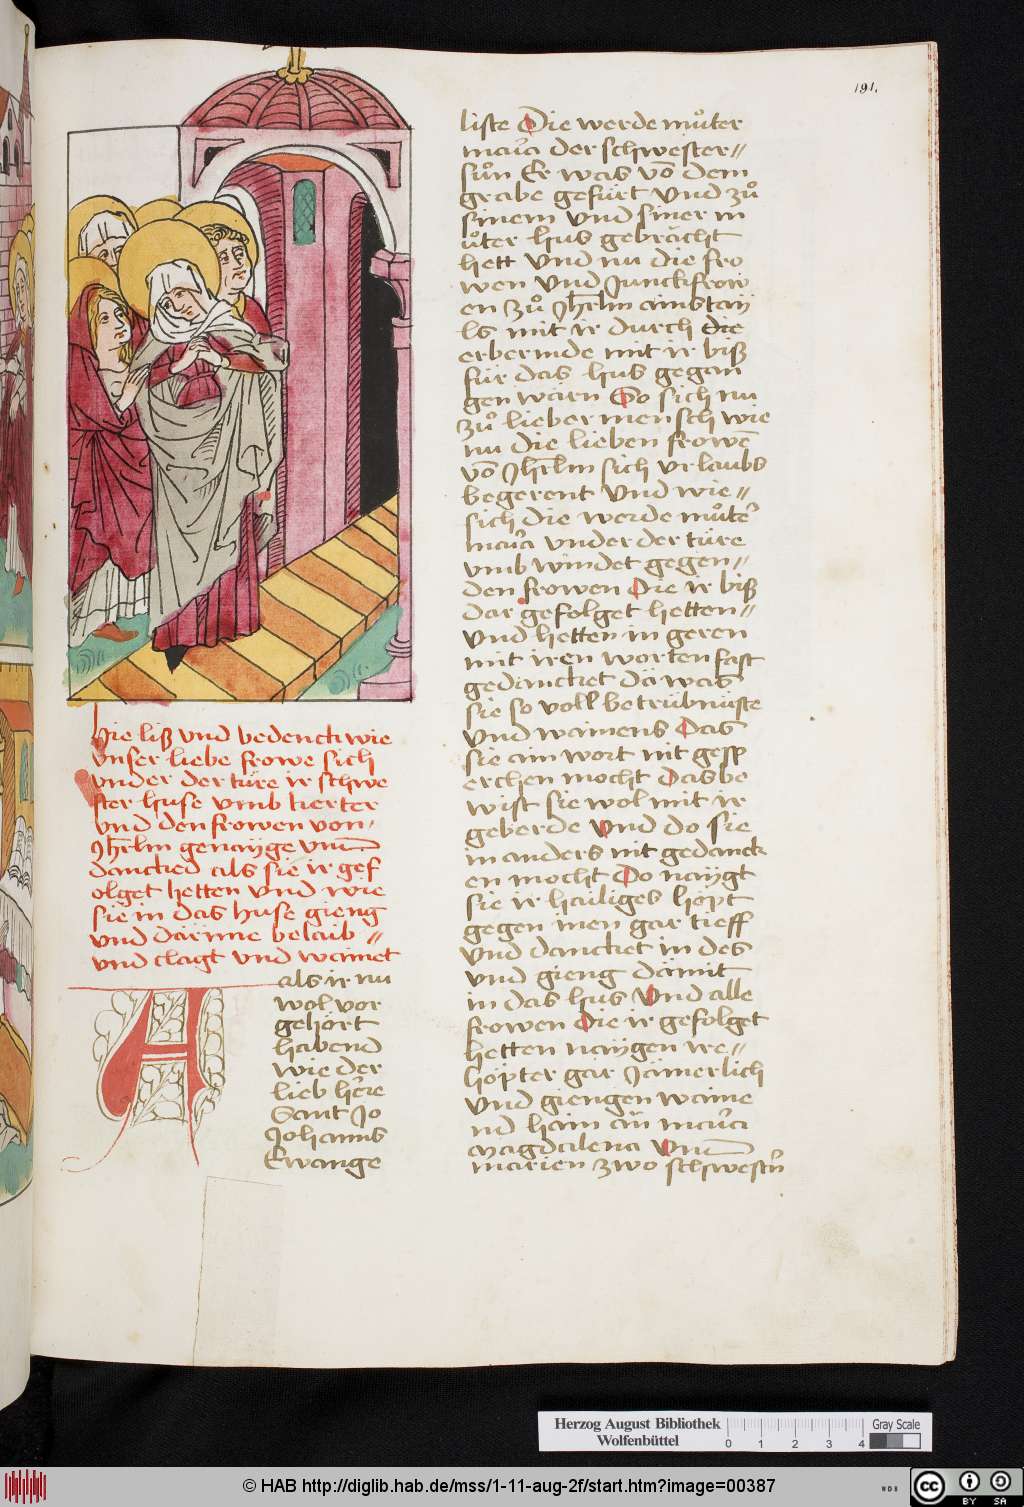 191.
hie liß vnd bedenck wie
vnser liebe frowe sich
vnder der türe ir schwe
ster huse vmb kerter
vnd den frowen von
Jhrlm genayge vnd
dancked als sie ir gef
olget hetten vnd wie
sie in das huse gieng
vnd darinne belaib //
vnd clagt vnd wainet
Als ir nu
wol vor
gehört
habend
wie der
lieb herre
Sant Jo
Johanns
Ewange
liste Die werde můter
maria der schwester //
sůn Er was vō dem
grabe gefürt Vnd zů
sinem vnd siner m
ůter hus gebracht
hett Vnd nu die fro
wen vnd Junckfrow
en zů Jhrlm
ls mit ir durch die
erbermde mit ir biß
für das hus gegan
gen wärn So sich nu
zů lieber mensch wie
nu die lieben frowē
vō Jhrlm sich vrlaubs
begerent Vnd wie //
sich die werde můter
maria vnder der türe
vmb windet gegen //
den frowen Die ir biß
dar gefolget hetten //
Vnd hetten in geren
mit iren worten fast
gedancket dä was
sie so voll betrübnuste
Vnd wainens Das
sie ain wort nit gesp
rechen mocht Das be
wist sie wol mit ir
geberde Vnd do sie
in anders nit gedanck
en mocht Do naygt
sie ir hailiges höpt
gegen inen gar tieff
Vnd dancket in des
vnd gieng dämit
in das hus Vnd alle
frowen Die ir gefolget
hetten naygen ire //
höpter gar Jämerlich
Vnd giengen waine
nd haim än maria
Magdalena Vnd
marien zwo schwestern
Herzog August Bibliothek
Wolfenbüttel
0 1 2 3 4
Gray Scale
© HAB http://diglib.hab.de/mss/1-11-aug-2f/start.htm?image=00387
WDB
cc BY SA